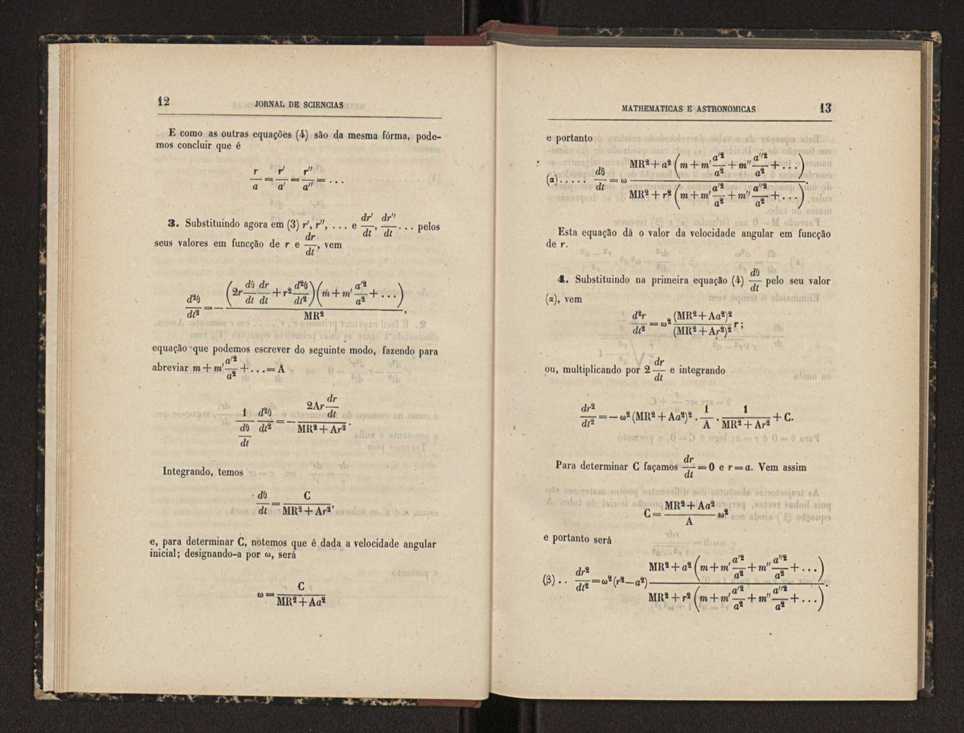 12 JORNAL DE SCIENCIAS
E como as outras equações (4) são da mesma fórma, pode-
mos concluir que é
r/a = r'/a' = r''/a'' = ...
3. Substituindo agora em (3) r', r'', ... e dr'/dt, dr''/dt ... pelos
seus valores em funcção de r e dr/dt, vem
d²ϑ/dt² = − (2r dϑ/dt dr/dt + r² d²ϑ/dt²)(m + m' a'²/a² + ...) / MR²,
equação que podemos escrever do seguinte modo, fazendo para
abreviar m + m' a'²/a² + ... = A
1/(dϑ/dt) d²ϑ/dt² = − 2Ar dr/dt / (MR² + Ar²).
Integrando, temos
dϑ/dt = C / (MR² + Ar²),
e, para determinar C, notemos que é dada a velocidade angular
inicial; designando-a por ω, será
ω = C / (MR² + Aa²)
MATHEMATICAS E ASTRONOMICAS 13
e portanto
(α)..... dϑ/dt = ω (MR² + a² (m + m' a'²/a² + m'' a''²/a² + ...)) / (MR² + r² (m + m' a'²/a² + m'' a''²/a² + ...)).
Esta equação dá o valor da velocidade angular em funcção
de r.
4. Substituindo na primeira equação (4) dϑ/dt pelo seu valor
(α), vem
d²r/dt² = ω² (MR² + Aa²)² / (MR² + Ar²)² r;
ou, multiplicando por 2 dr/dt e integrando
dr²/dt² = − ω² (MR² + Aa²)² . 1/A . 1/(MR² + Ar²) + C.
Para determinar C façamos dr/dt = 0 e r = a. Vem assim
C = (MR² + Aa²)/A ω²
e portanto será
(β).. dr²/dt² = ω² (r² − a²) (MR² + a² (m + m' a'²/a² + m'' a''²/a² + ...)) / (MR² + r² (m + m' a'²/a² + m'' a''²/a² + ...)).